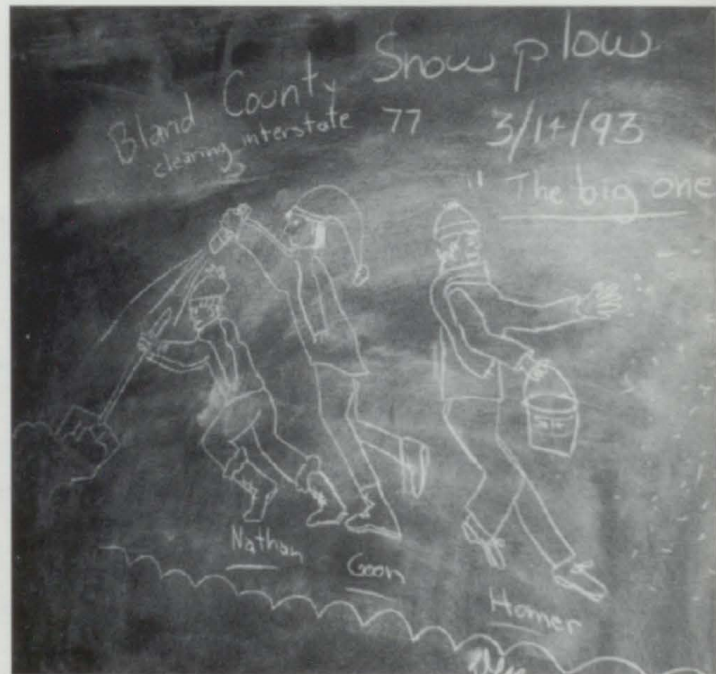 Bland County Snow plow
clearing interstate 77 3/14/93
" The big one
Nathan Goon Homer